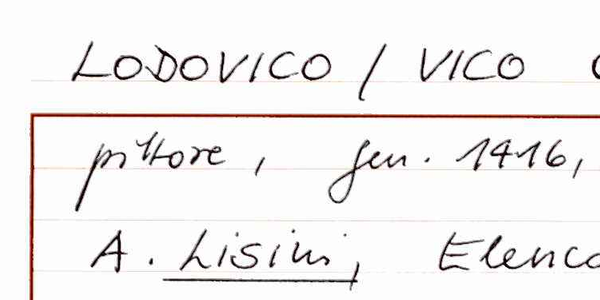 LODOVICO / VICO
pittore, gen. 1416,
A. Lisini, Elenco